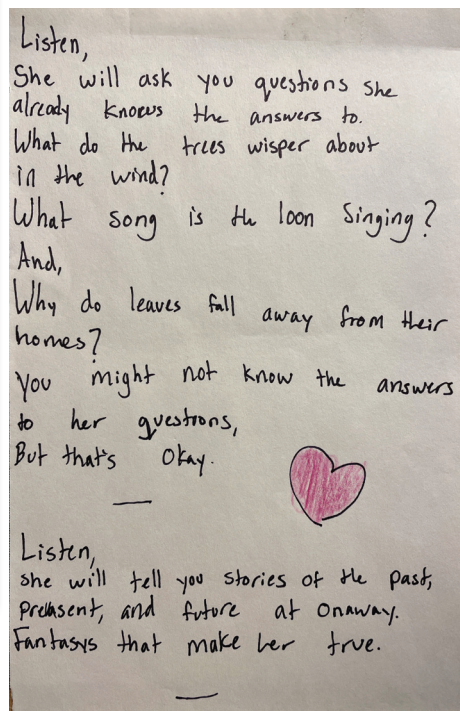 Listen,
She will ask you questions she
already knows the answers to.
What do the trees wisper about
in the wind?
What song is the loon Singing?
And,
Why do leaves fall away from their
homes?
You might not know the answers
to her questions,
But that's Okay.
Listen,
she will tell you stories of the past,
and future at Onaway.
Fantasys that make her true.